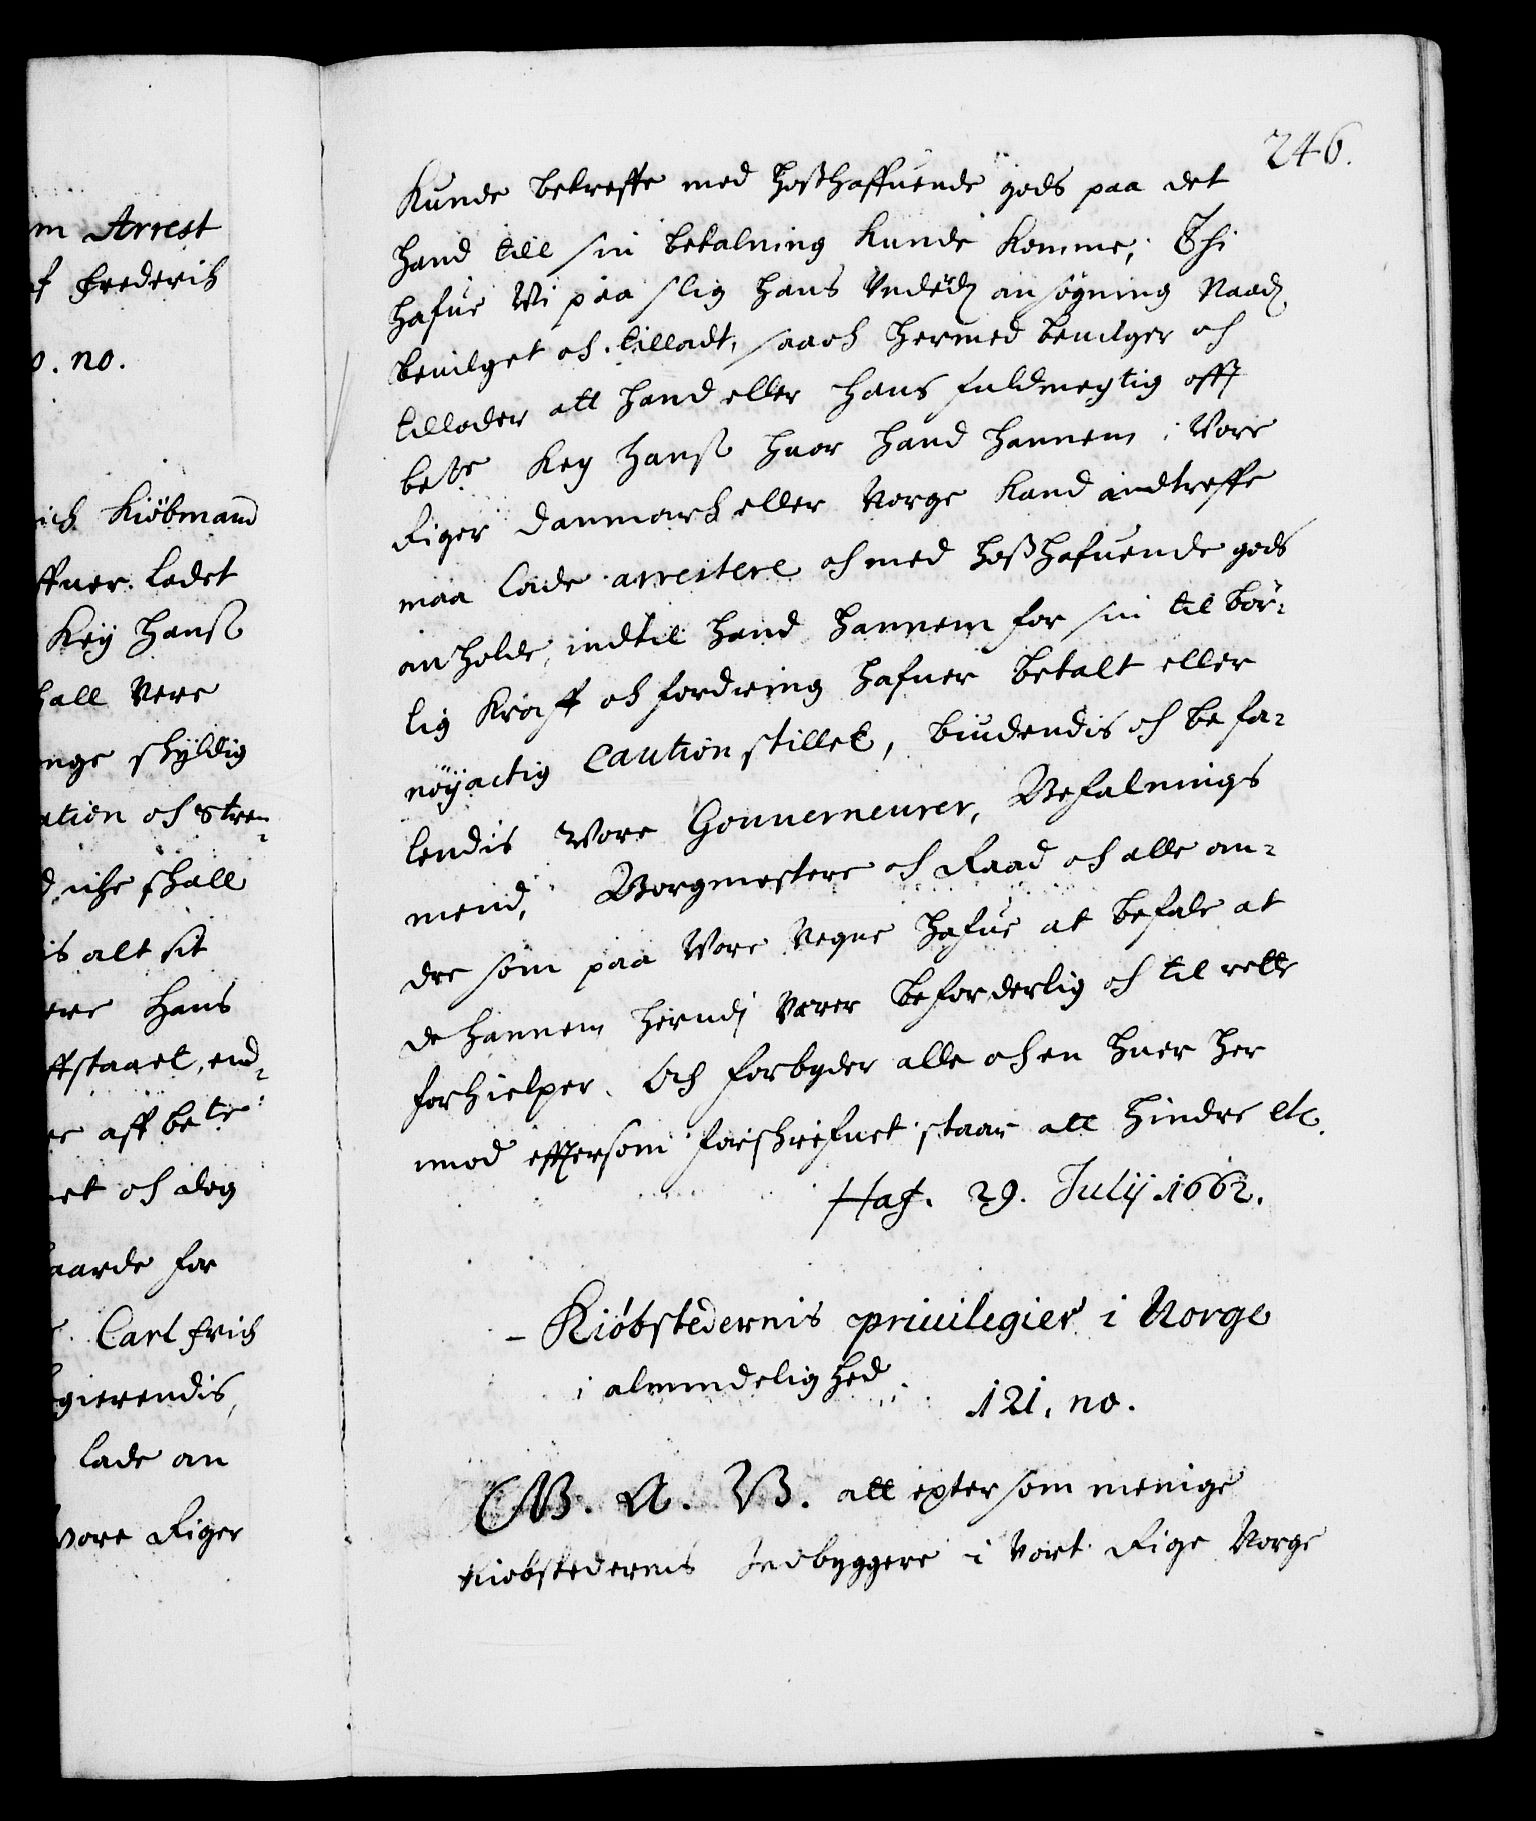 m Arrest
f Frederich
o. no.
ich Kiöbmand
ffuer ladet
Keÿ Hanß
hall Vere
nge shÿldig
ation och Stren-
d iche shall
is alt sit
ere Hans
ffstaaet, end-
er aff bete
et och dog
aarde for
Carl Erich
gierendis,
lade an
vore Riger
246.
Kunde betreffe med hoßhaffuende gods paa det
hand till sin betalning Kunde Komme; Thi
hafue Wi paa slig hans Vnderd: ansögning Naad:
beuilget och tilladt, saa och hermed beuilger och
tillader att hand eller hans fuldmegtig offt
bete Key Hanß huor hand hannem i Vore
Riger Danmarch eller Norge Kand andtreffe
maa lade arrestere och med hoßhafuende gods
anholde, indtil hand hannem for sin tilbör-
lig Kraff och fordring hafuer betalt eller
nöÿactig Caution stillet, biudendis och befa-
lendis Vore Gouuerneurer, Befalnings
mend, Borgmestere och Raad och alle an-
dre som paa Vore Vegne hafue at befale at
de hannem herudj Værer beforderlig och til rette
forhielper. Och forbyder alle och en huer her
imod efftersom forshrefuet staar att hindre etc.
Haf. 29. Julij 1662.
- Kiöbstedernis priuilegier i Norge
i almindelighed.
121. no.
G. A. V. att epter som menige
Kiöbstedernis Indbyggere i Vort Rige Norge